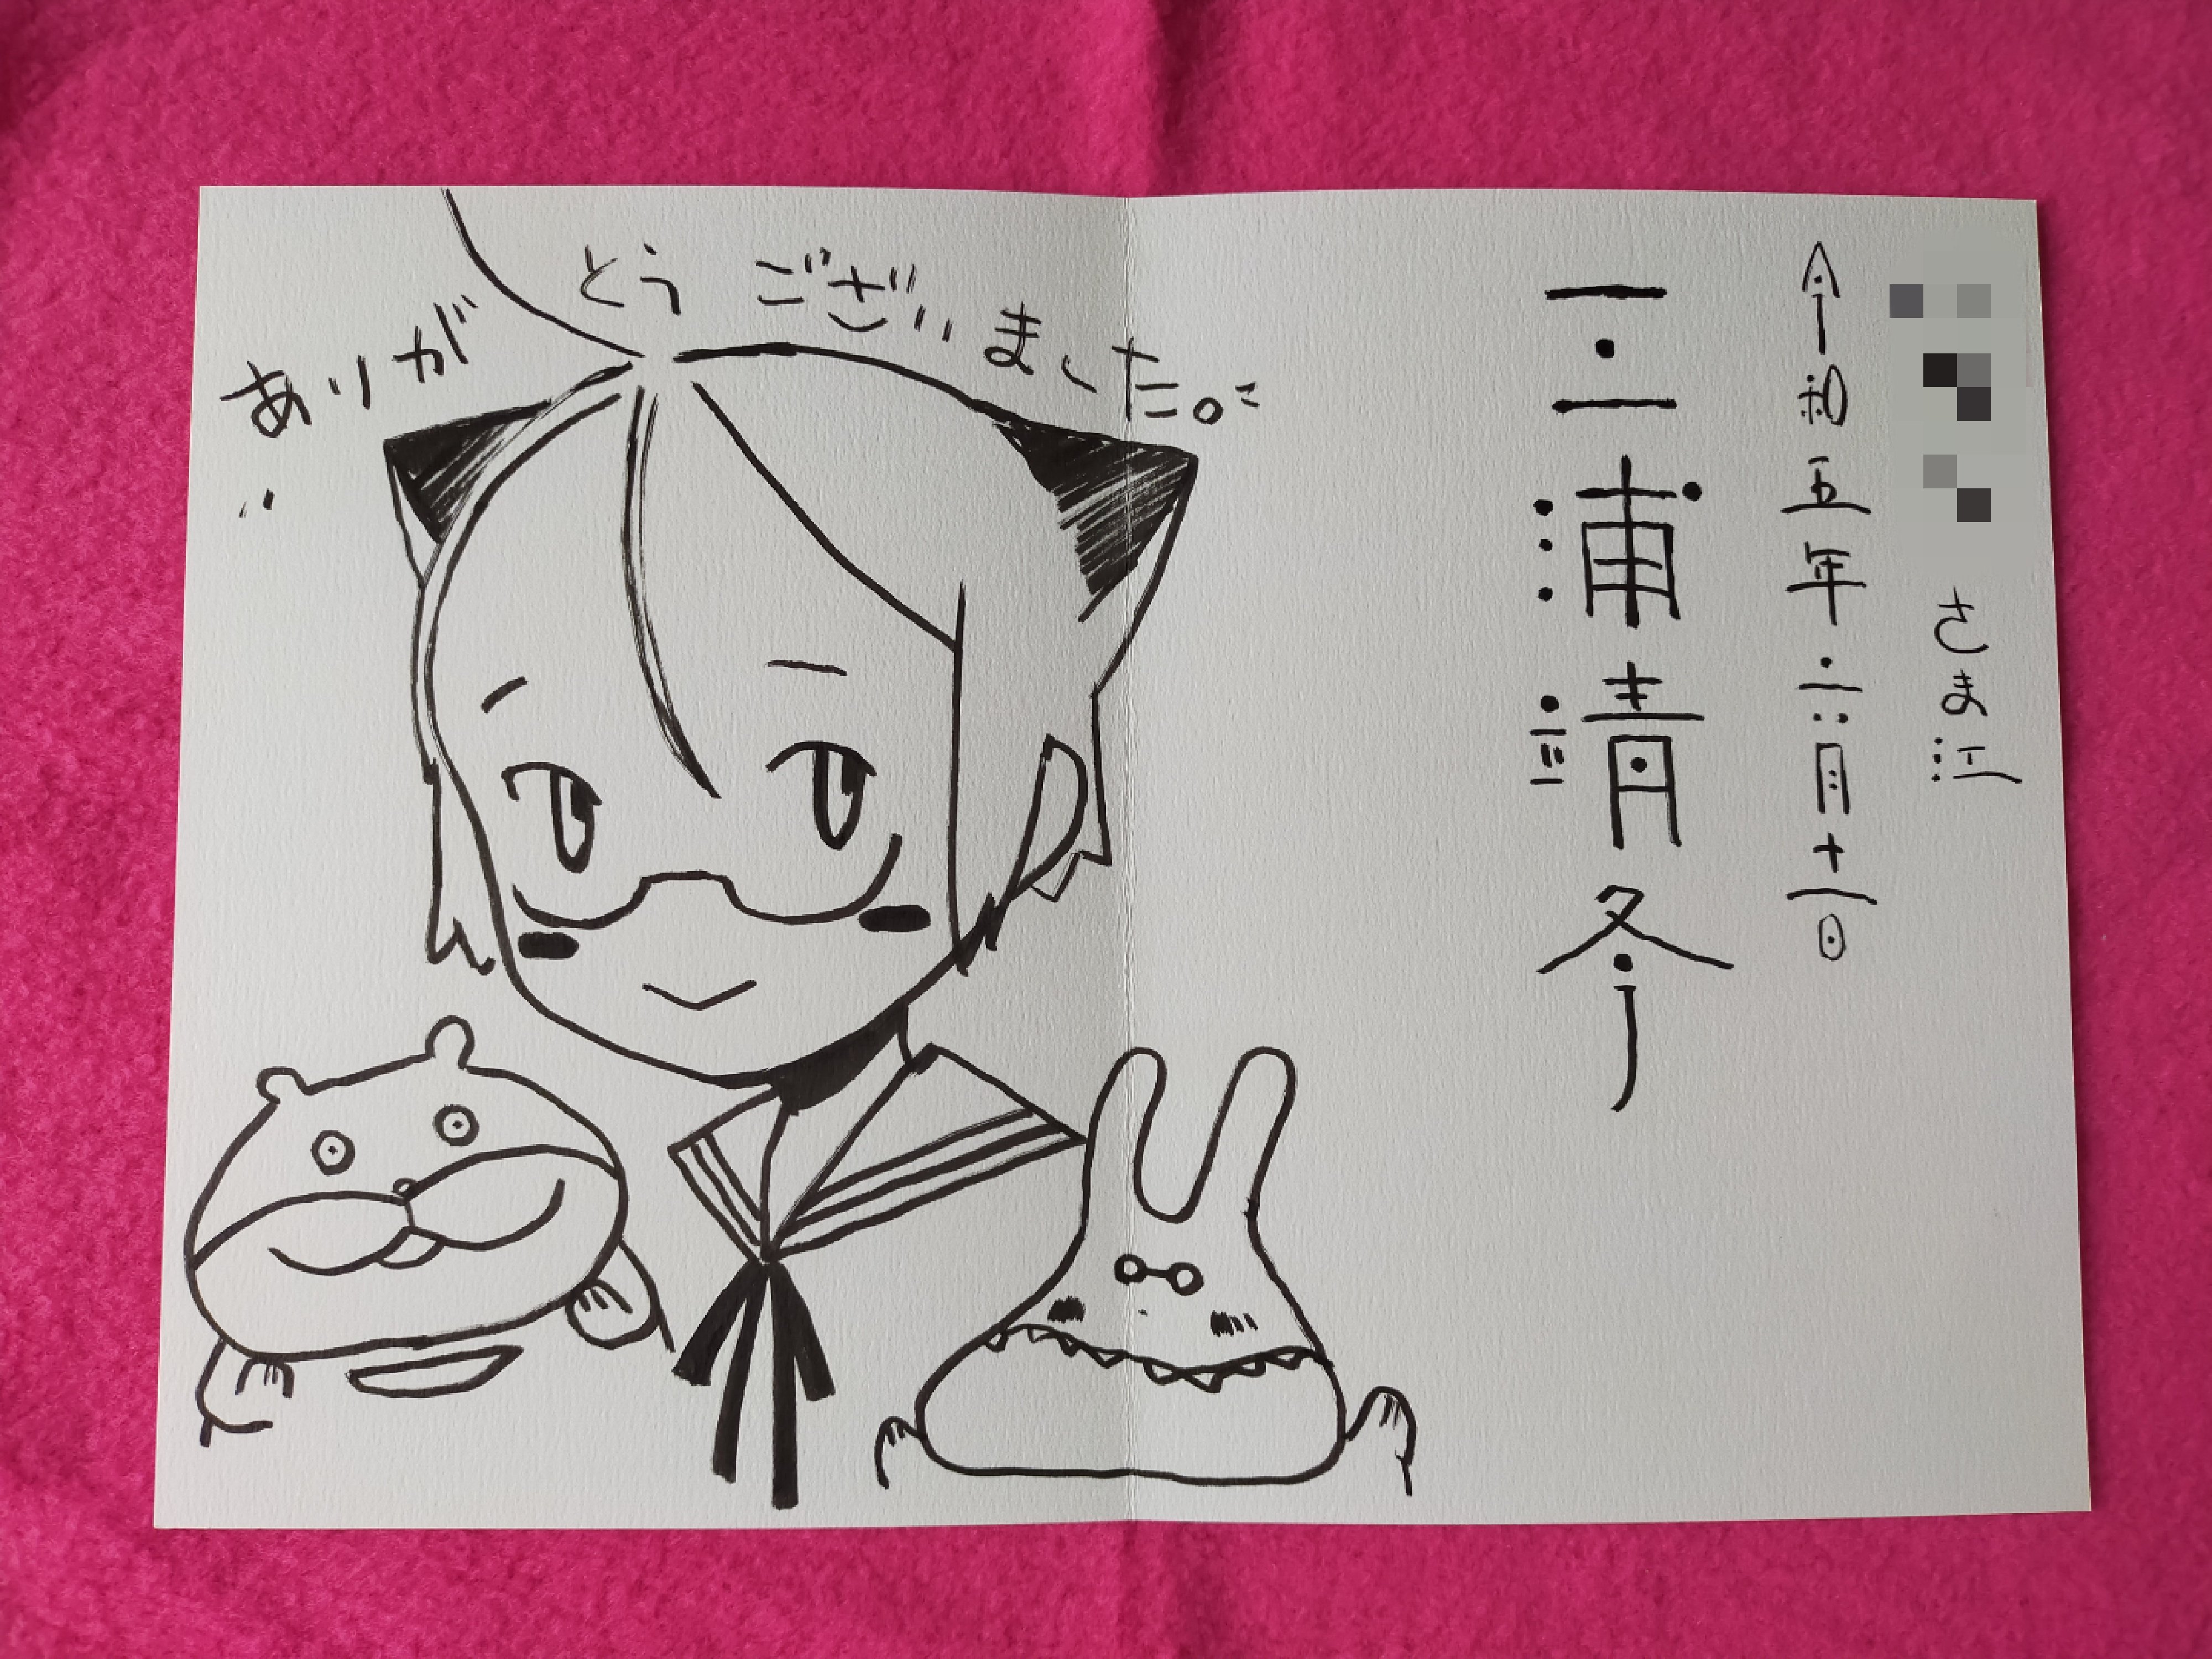 さま江
令和五年六月十一日
三浦靖冬
ありがとうございました。